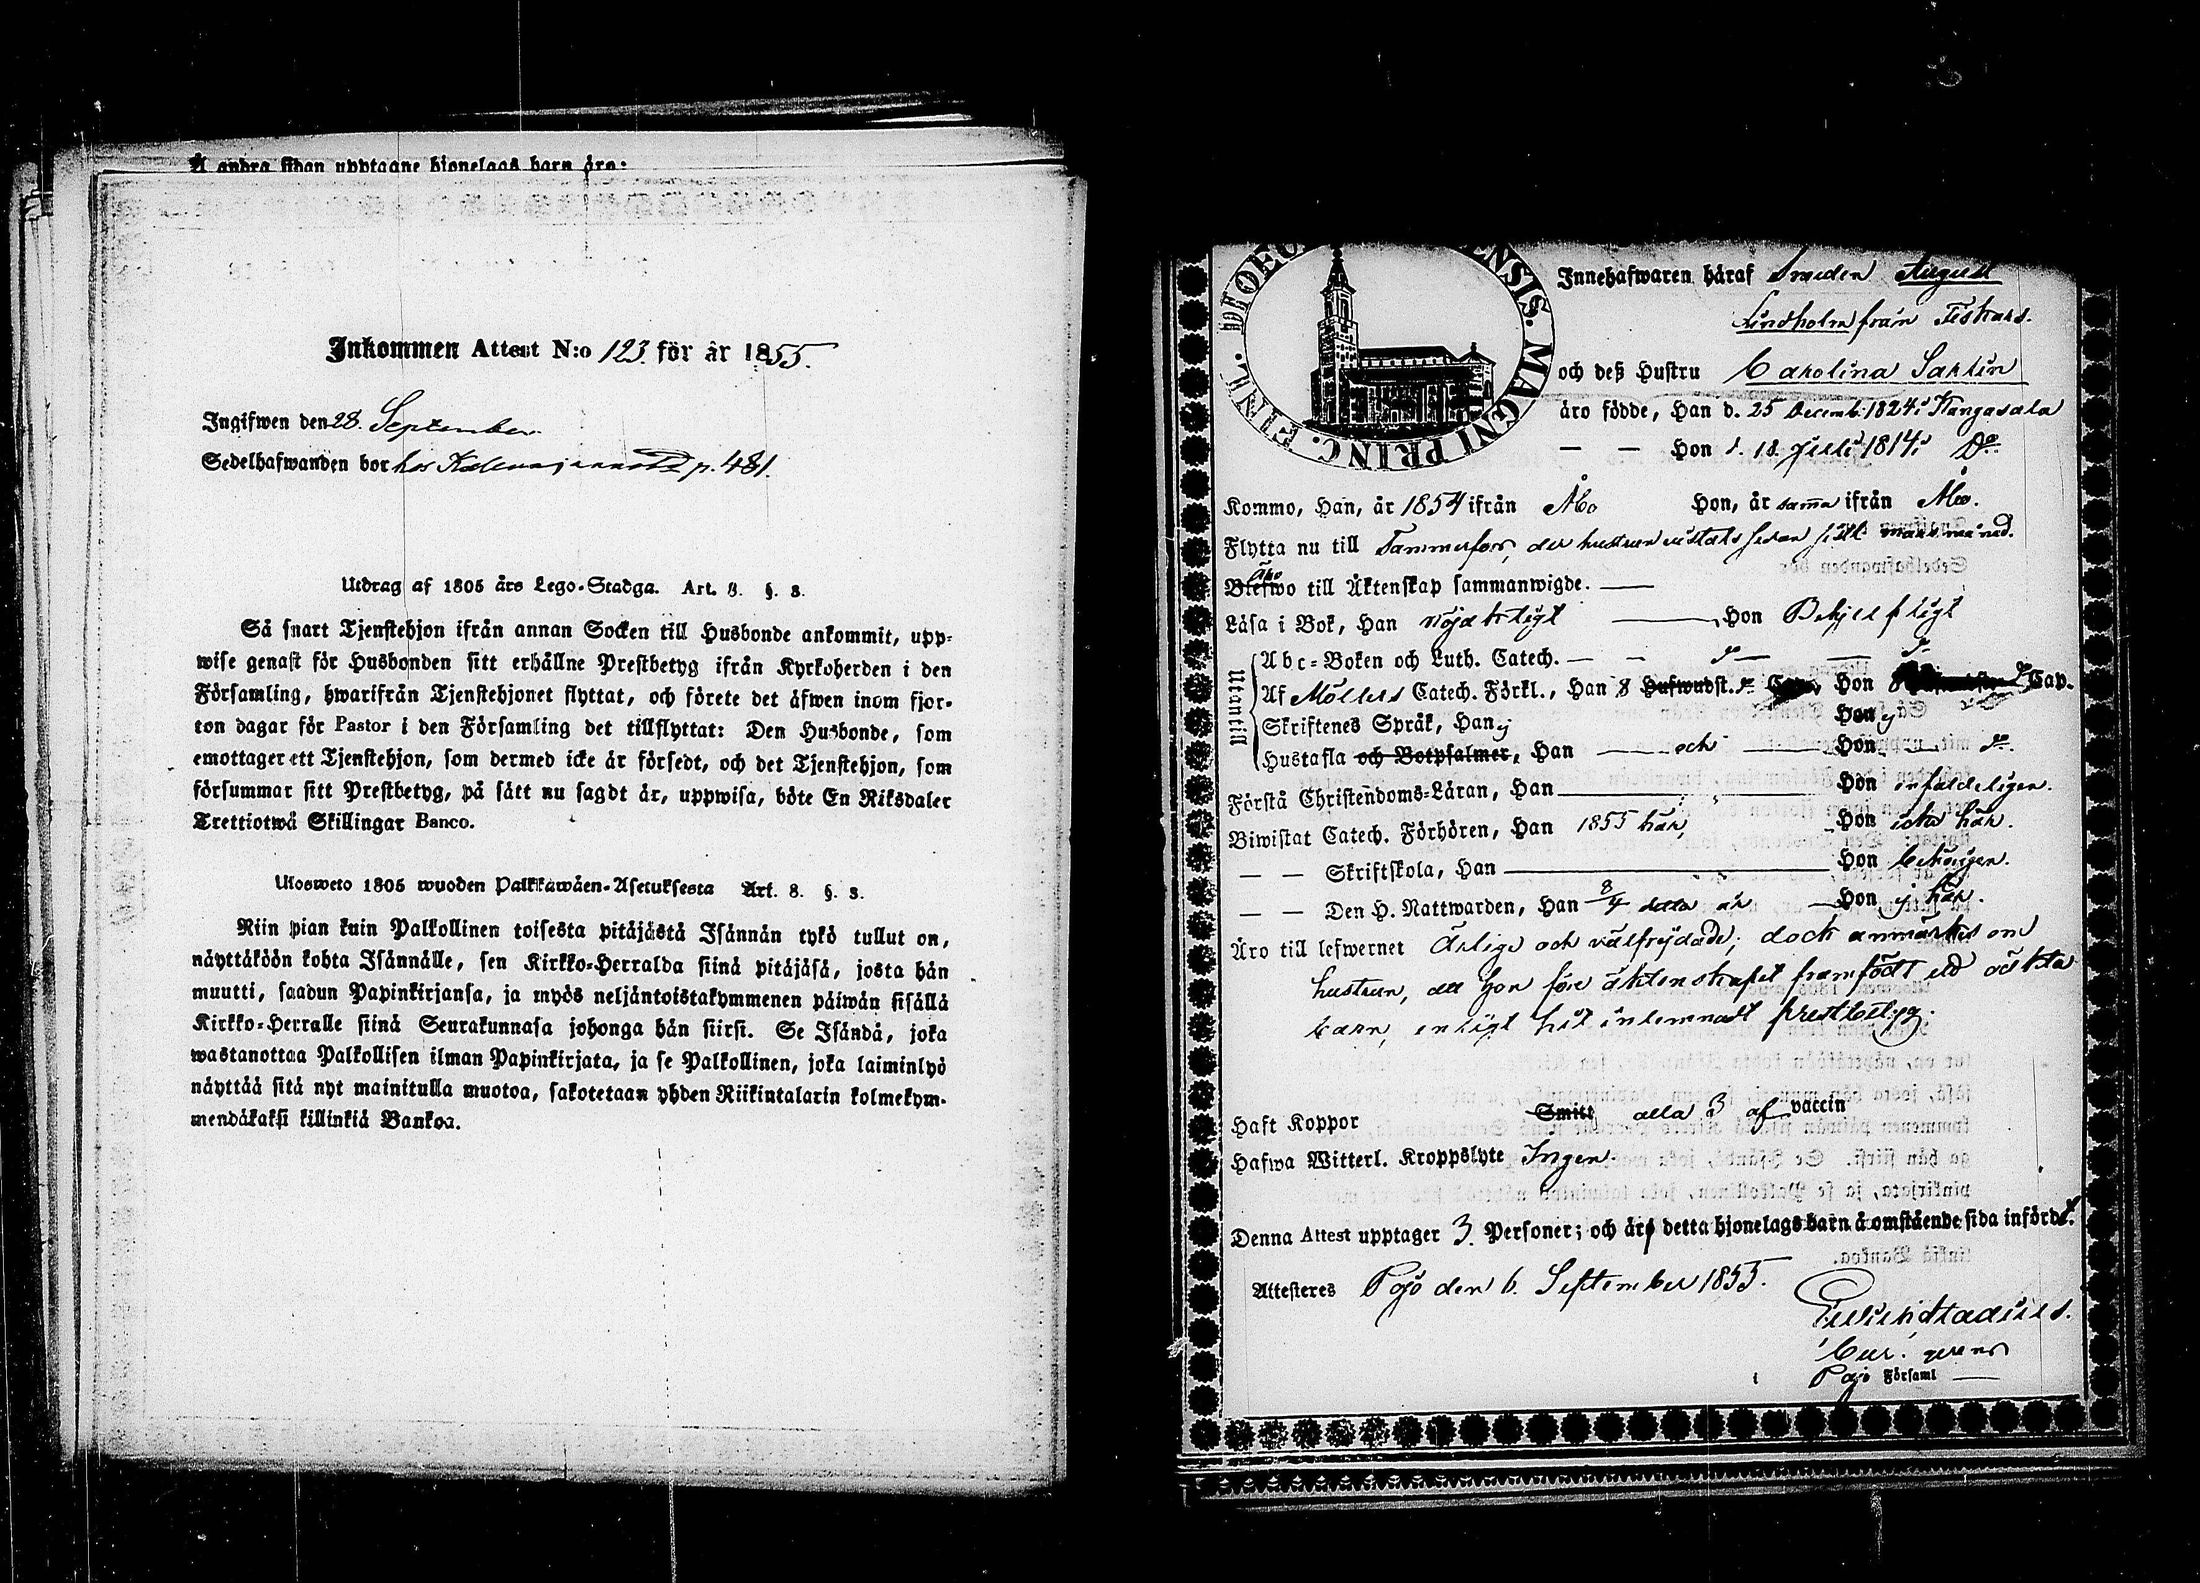 Å andra sidan upptagne hjonelags barn äro:
Inkommen Attest N:o 123 för år 1855.
Ingifwen den 28. September
Sedelhafwanden bor hos p. 481.
Utdrag af 1805 års Lego-Stadga. Art. 8. §. 3.
Så snart Tjenstehjon ifrån annan Socken till Husbonde ankommit, upp-
wise genast för Husbonden sitt erhållne Prestbetyg ifrån Kyrkoherden i den
Församling, hwarifrån Tjenstehjonet flyttat, och förete det äfwen inom fjor-
ton dagar för Pastor i den Församling det tillflyttat: Den Husbonde, som
emottager ett Tjenstehjon, som dermed icke är försedt, och det Tjenstehjon, som
försummar sitt Prestbetyg, på sätt nu sagdt är, uppwisa, böte En Riksdaler
Trettiotwå Skillingar Banco.
Ulosweto 1805 wuoden Palkkawäen-Asetuksesta Art. 8. §. 3.
Niin pian kuin Palkollinen toisesta pitäjästä Isännän tykö tullut on,
näyttäköön kohta Isännälle, sen Kirkko-Herralda siinä pitäjäsä, josta hän
muutti, saadun Papinkirjansa, ja myös neljäntoistakymmenen päiwän sisällä
Kirkko-Herralle siinä Seurakunnasa johonga hän siirsi. Se Isändä, joka
wastanottaa Palkollisen ilman Papinkirjata, ja se Palkollinen, joka laiminlyö
näyttää sitä nyt mainitulla muotoa, sakotetaan yhden Riikintalarin kolmekym-
mendäkaksi killinkiä Bankoa.
DIOEC ENSIS. MAGNI PRINC. FINL.
Innehafwaren häraf Smeden August
Lindholm från Fiskars.
och deß Hustru Carolina Sahlin
äro födde, Han d. 25 Decemb. 1824 i Kangasala
— — Hon d. 18 Julii 1814 i Do
Kommo, Han, år 1854 ifrån Åbo Hon, år samma ifrån Åbo.
Flytta nu till Tammerfors, der hustrun vistats sedan sistl. mars månad.
Blefwo Äro till Äktenskap sammanwigde. —
Läsa i Bok, Han nöjaktigt — Hon Behjelpligt
Utantill
Abc-Boken och Luth. Catech. — —
Af Möllers Catech. Förkl., Han 8 Hufwudst. Hon 8 Cap.
Skriftenes Språk, Han ej Hon ej
Hustafla och Botpsalmer, Han — och — Hon —
Förstå Christendoms-Läran, Han — Hon enfaldeligen.
Biwistat Catech. Förhören, Han 1855 här, Hon icke här.
— — Skriftskola, Han — Hon behörigen.
— — Den H. Nattwarden, Han 8/4 detta år — Hon ej här.
Äro till lefwernet Ärlige och välfrejdade; dock anmärkes om
hustrun, att hon före äktenskapet framfödt ett oäkta
barn, enligt hit inlemnadt prestbetyg.
Haft Koppor Smitt alla 3 af vaccin
Hafwa Witterl. Kroppslyte Ingen.
Denna Attest upptager 3. Personer; och äro detta hjonelags barn å omstående sida infördt.
Attesteres Pojo den 6. September 1855.
Cur. gerens
i Pojo Församl —